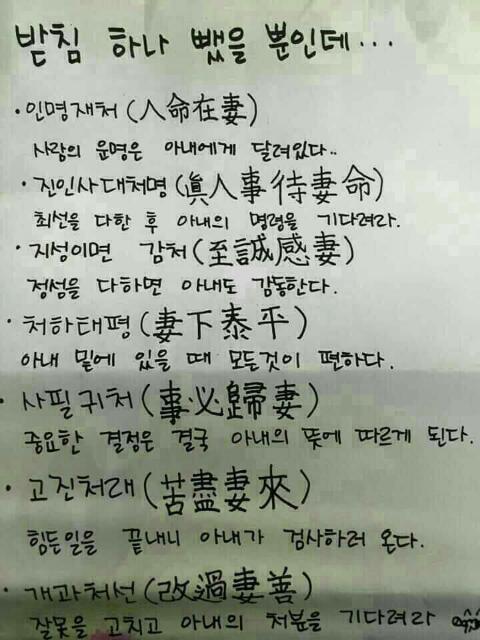 받침 하나 뺐을 뿐인데...
· 인명재처 (人命在妻)
사람의 운명은 아내에게 달려있다..
· 진인사대처명 (眞人事待妻命)
최선을 다한 후 아내의 명령을 기다려라.
· 지성이면 감처 (至誠感妻)
정성을 다하면 아내도 감동한다.
· 처하태평 (妻下泰平)
아내 밑에 있을 때 모든것이 편하다.
· 사필귀처 (事必歸妻)
중요한 결정은 결국 아내의 뜻에 따르게 된다.
· 고진처래 (苦盡妻來)
힘든일을 끝내니 아내가 검사하러 온다.
· 개과처선 (改過妻善)
잘못을 고치고 아내의 처분을 기다려라